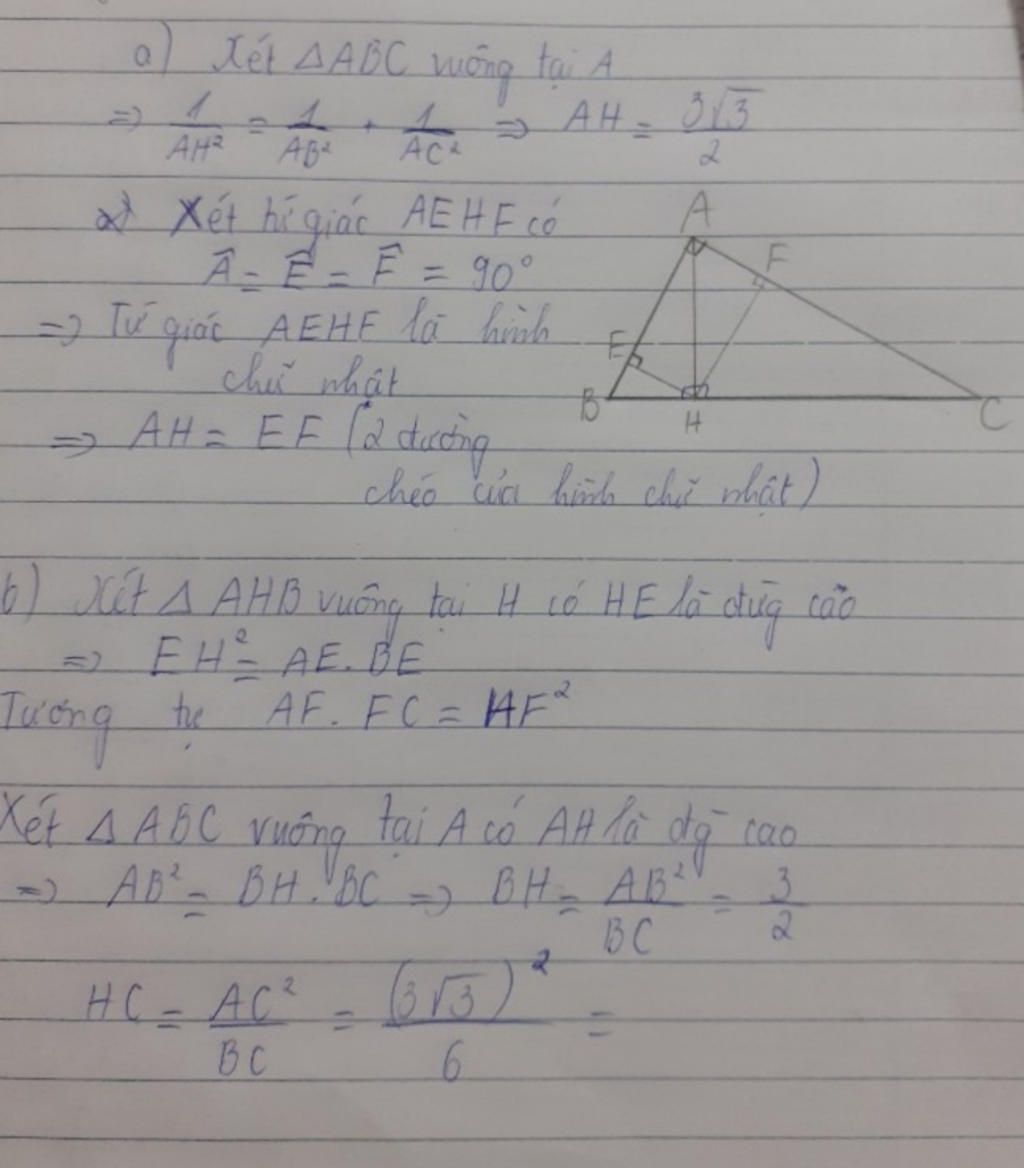 a) Xét ΔABC vuông tại A
=> 1/AH² = 1/AB² + 1/AC² => AH = 3√3/2
Xét tứ giác AEHF có
Â = Ê = F̂ = 90°
=> Tứ giác AEHF là hình
chữ nhật
=> AH = EF (2 đường
chéo của hình chữ nhật)
A
F
E
B
H
C
b) Xét Δ AHB vuông tại H có HE là đường cao
=> EH² = AE.BE
Tương tự AF. FC = HF²
Xét ΔABC vuông tại A có AH là đg cao
=> AB² = BH.BC => BH = AB²/BC = 3/2
HC = AC²/BC = (3√3)²/6 =